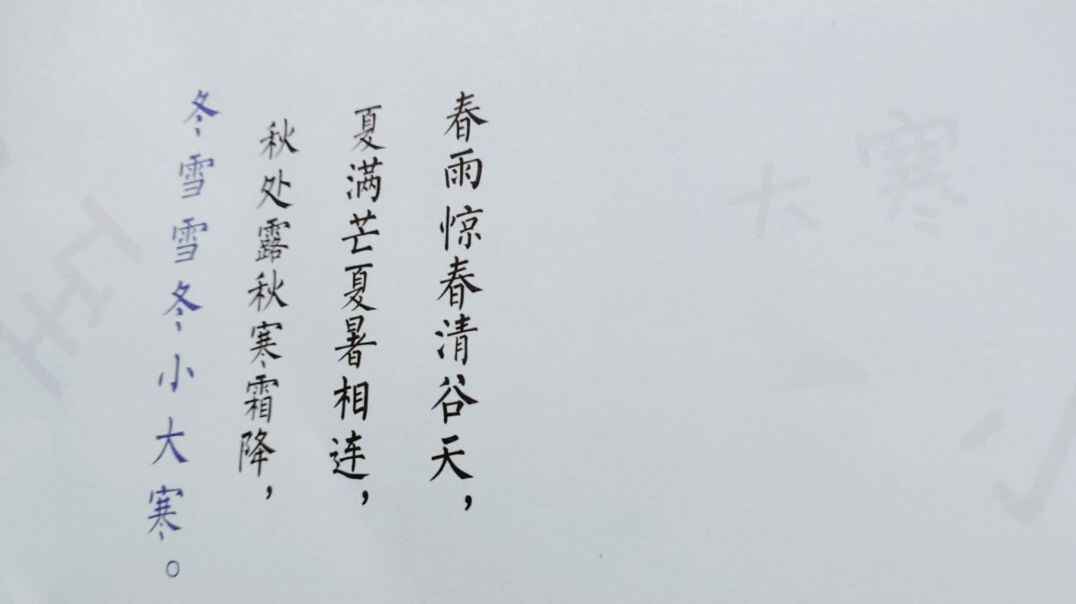 春雨惊春清谷天，
夏满芒夏暑相连，
秋处露秋寒霜降，
冬雪雪冬小大寒。
大寒